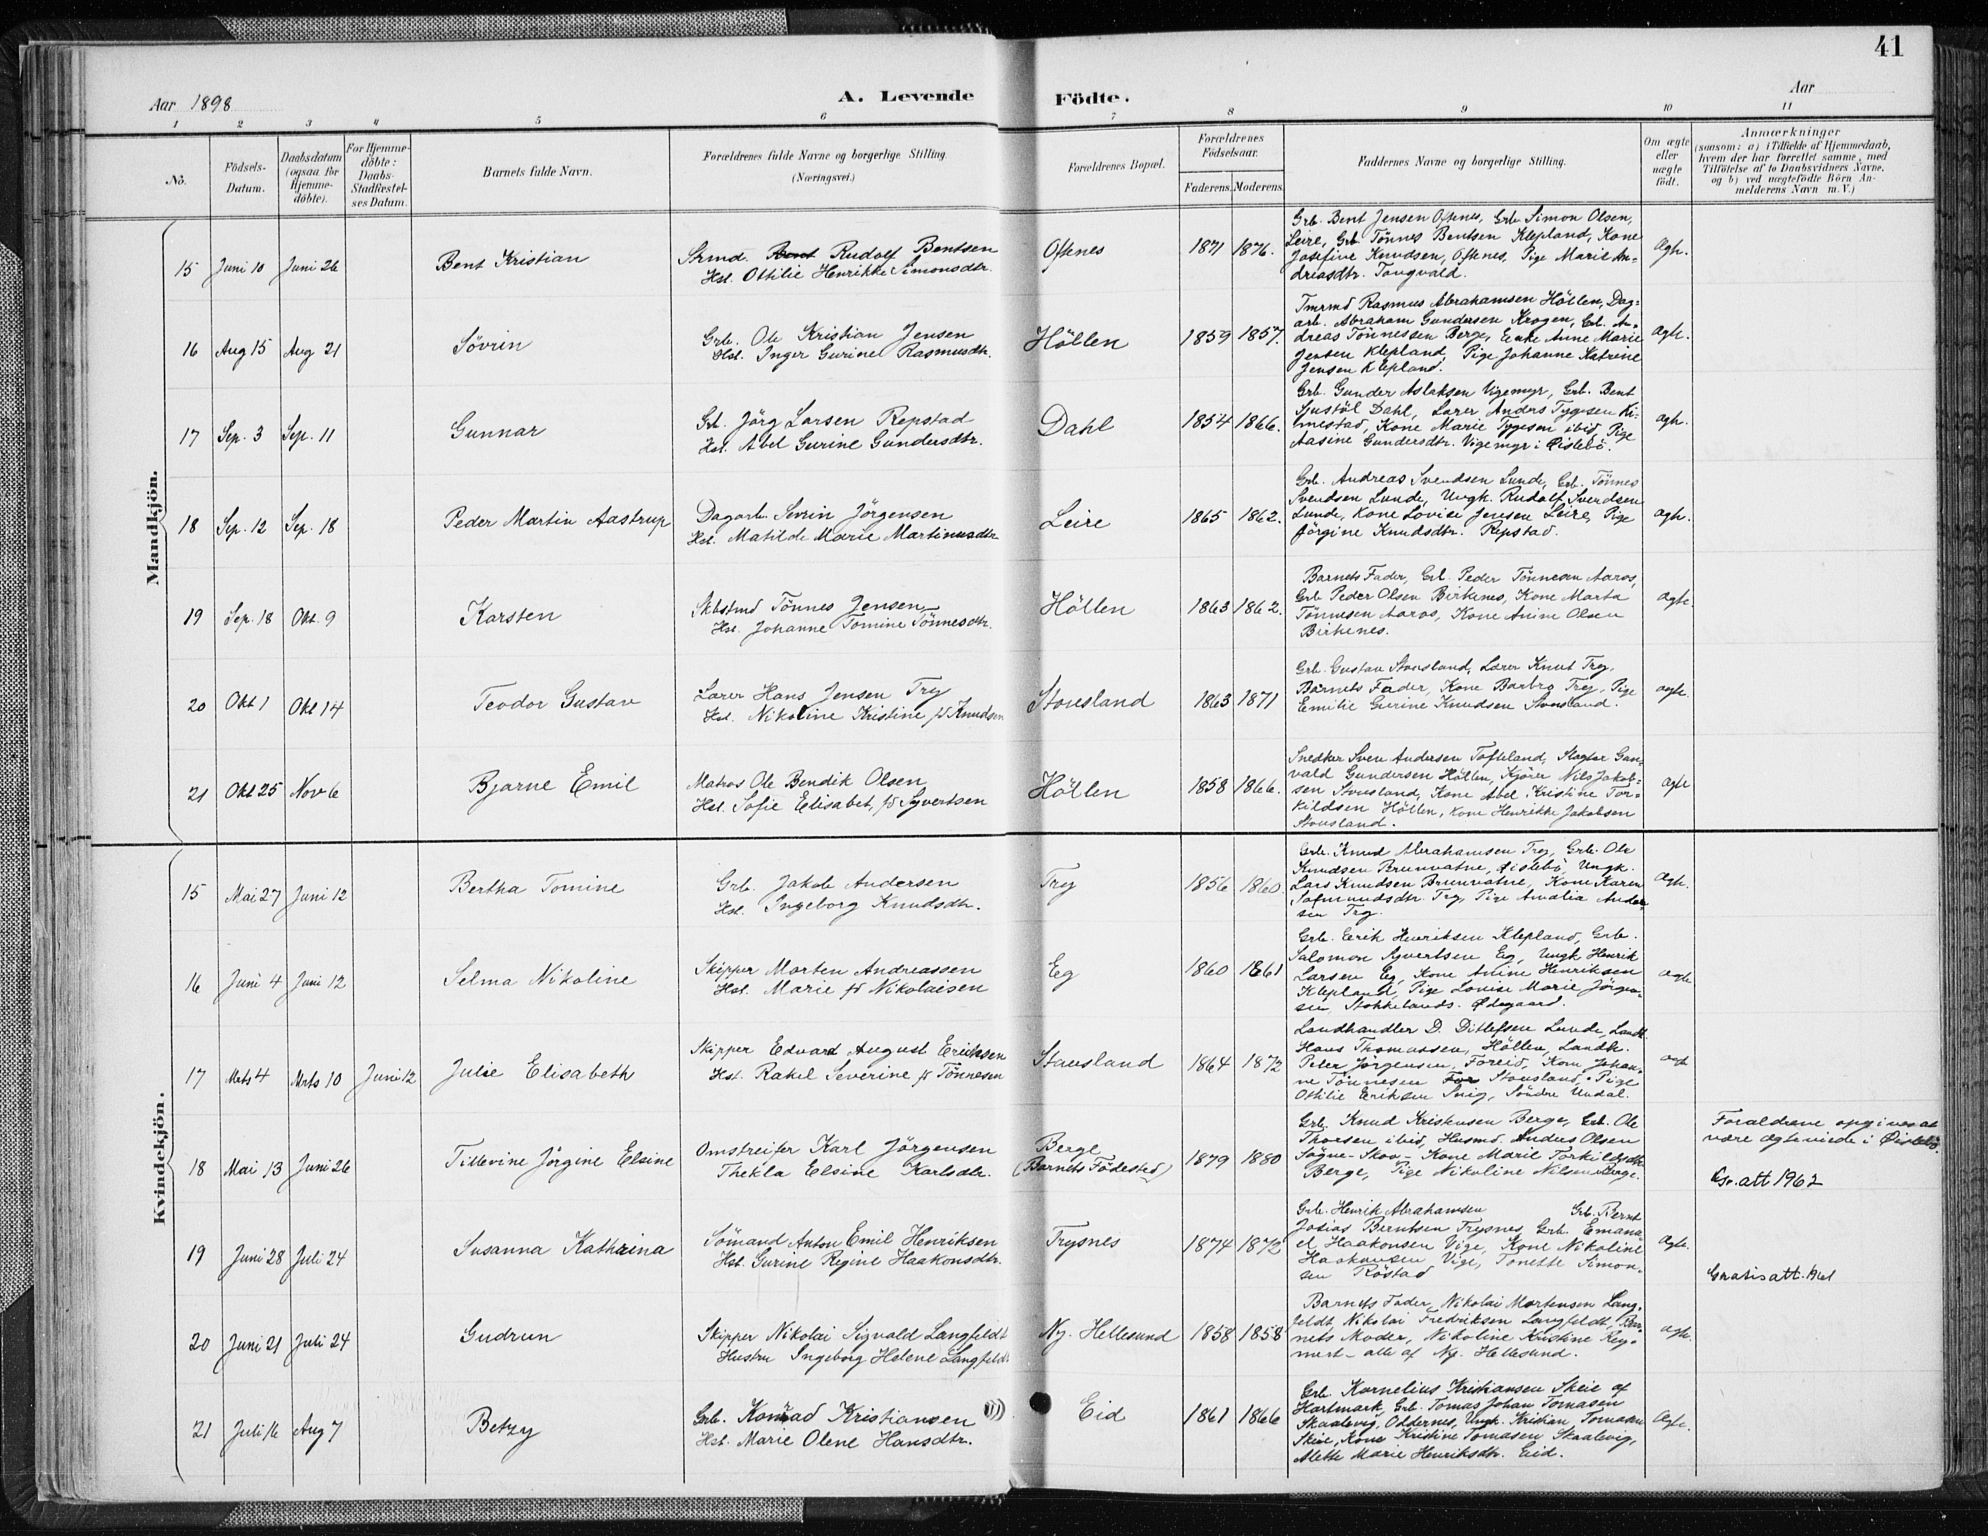 41
Aar 1898
A. Levende Födte.
Aar
1 2 3 4 5 6 7 8 9 10 11
Nò.
Födsels-Datum.
Daabsdatum (ogsaa for Hjemmedöbte).
For Hjemmedöbte: Daabs-Stadfæstelses Datum.
Barnets fulde Navn.
Forældrenes fulde Navne og borgerlige Stilling (Næringsvei.)
Forældrenes Bopæl.
Forældrenes Födselsaar.
Faderens. Moderens.
Faddernes Navne og borgerlige Stilling.
Om ægte eller uægte födt.
Anmærkninger
(saasom: a) i Tilfælde af Hjemmedaab, hvem der har forrettet samme, med Tilföielse af to Daabsvidners Navne, og b) ved uægtefödte Börn Anmelderens Navn m. V.)
Mandkjön.
15 Juni 10 Juni 26 Bent Kristian
Strmd. Bent Rudolf Bentsen
Hst. Othilie Henrikke Simonsdtr.
Oftenes 1871 1876.
Grb. Bent Jensen Oftenes, Grb. Simon Olsen,
Leire, Grb. Tönnes Bentsen Klepland, Kone
Josefine Knudsen, Oftenes, Pige Marie An-
dreasdtr. Tangvald.
Ægte.
16 Aug 15 Aug 21 Sövrin
Grb. Ole Kristian Jensen
Hst. Inger Gurine Rasmusdtr.
Höllen 1859 1857.
Tmrmd Rasmus Abrahamsen Höllen, Dag-
arb. Abraham Gundersen Krogen, Grb. An-
dreas Tönnessen Berge, Enke Anne Marie
Jensen Klepland, Pige Johanne Katrine
Jensen Klepland.
ægte.
17 Sep. 3 Sep. 11 Gunnar
Grb. Jörg Larsen Repstad
Hst. Abel Gurine Gundersdtr.
Dahl 1854 1866.
Grb. Gunder Aslaksen Vigemyr, Grb. Bent
Sjustöl Dahl, Lærer Anders Tygesen Ki-
mestad, Kone Marie Tygesen ibid, Pige
Aasine Gundersdtr. Vigemyr i Øislebö.
ægte.
18 Sep. 12 Sep. 18 Peder Martin Aastrup
Dagarb. Sevrin Jörgensen
Hst. Matilde Marie Martinusdtr
Leire 1865 1862.
Grb. Andreas Svendsen Lunde, Grb. Tönnes
Svendsen Lunde, Ungk. Rudolf Svendsen
Lunde, Kone Lovise Jensen Leire, Pige
Jörgine Knudsdtr. Repstad.
ægte.
19 Sep. 18 Okt. 9 Karsten
Skbstmd Tönnes Jensen
Hst. Johanne Tomine Tönnesdtr.
Höllen 1863 1862.
Barnets Fader, Grb. Peder Tönnesen Aaros,
Grb Peder Olsen Birkenes, Kone Marta
Tönnesen Aaros, Kone Anine Olsen
Birkenes.
ægte.
20 Okt 1 Okt 14 Teodor Gustav
Lærer Hans Jensen Try
Hst. Nikoline Kristine fd Knudsen
Stousland 1863 1871
Grb. Gustav Stousland, Lærer Knut Try,
Barnets Fader, Kone Barbro Try, Pige
Emilie Gurine Knudsen Stousland.
ægte
21 Okt 25 Nov 6 Bjarne Emil
Matros Ole Bendik Olsen
Hst. Sofie Elisabet fd Syvertsen
Höllen 1858 1866.
Snedker Sven Andersen Tofteland, Slagter Gun-
vald Gundersen Höllen, Kjörer Nils Jakob-
sen Stousland, Kone Abel Kristine Tor-
kildsen Höllen, Kone Henrikke Jakobsen
Stousland.
ægte
Kvindekjön.
15 Mai 27 Juni 12 Bertha Tomine
Grb. Jakob Andersen
Hst. Ingeborg Knudsdtr.
Try 1856 1860
Grb. Knud Abrahamsen Try, Grb. Ole
Knudsen Brunvatne, Øislebö, Ungk.
Lars Knudsen Brunvatne, Kone Karen
Try, Pige Amalia Ander-
sen Try.
Ægte.
16 Juni 4 Juni 12 Selma Nikoline
Skipper Morten Andreassen
Hst. Marie fd Nikolaisen
Eg 1860 1861
Grb. Erik Henriksen Klepland, Grb.
Salomon Syvertsen Eg, Ungk Henrik
Larsen Eg, Kone Anine Henriksen
Klepland, Pige Lovise Marie Jörgen-
sen Stokkelands. Ödegaard.
ægte
17 Mrts 4 Mrts 10 Juni 12 Julie Elisabeth
Skipper Edvard August Eriksen
Hst. Rakel Severine fd Tönnesen
Stausland 1864 1872
Landhandler D. Ditlefsen Lunde, Landh.
Hans Thomassen, Höllen, Landh.
Peter Jörgensen, Föreid, Kone Johan-
ne Tönnesen Stousland, Pige
Othilie Eriksen Snig, Söndre Undal.
ægte
18 Mai 13 Juni 26 Tillevine Jörgine Elsine
Omstreifer Karl Jörgensen
Thekla Elsine Karlsdtr.
Berge
(Barnets Födested)
1879 1880
Grb. Knud Kristensen Berge, Grb. Ole
Thorsen ibid, Husmd. Anders Olsen
Søgne-Skov- Kone Marie Torkildsdtr
Berge, Pige Nikoline Nilsen Berge.
Forældrene opgives at
være ægteviede i Øislebö.
Gr. att 1962
19 Juni 28 Juli 24 Susanna Kathrina
Sömand Anton Emil Henriksen
Hst. Gurine Regine Haakonsdtr.
Trysnes 1874 1872
Grb. Henrik Abrahamsen Grb. Bernt
Josias Berntsen Trysnes, Grb. Emanu-
el Haakonsen Vige, Kone Nikoline
Haakonsen Vige, Tonette Simon-
sen Röstad
Ægte.
Gratisatt.
20 Juni 21 Juli 24 Gudrun
Skipper Nikolai Sigvald Langfeldt
Hustru Ingeborg Helene Langfeldt
Ny. Hellesund 1858 1858
Barnets Fader, Nikolai Mortensen Lang-
feldt, Nikolai Fredriksen Langfeldt, Bar-
nets Moder, Nikoline Kristine Rey-
mert - alle af Ny. Hellesund.
ægte.
21 Juli 16 Aug 7 Betzy
Grb. Konrad Kristiansen
Hst. Marie Olene Hansdtr.
Eid 1861 1866
Grb. Kornelius Kristiansen Skeie af
Hartmark, Grb. Tomas Johan Tomasen
Skaalevig, Oddernes, Ungk. Kristian Tomasen
Skeie, Kone Kristine Tomasen Skaalevig,
Alette Marie Henriksdtr. Eid.
Ægte.